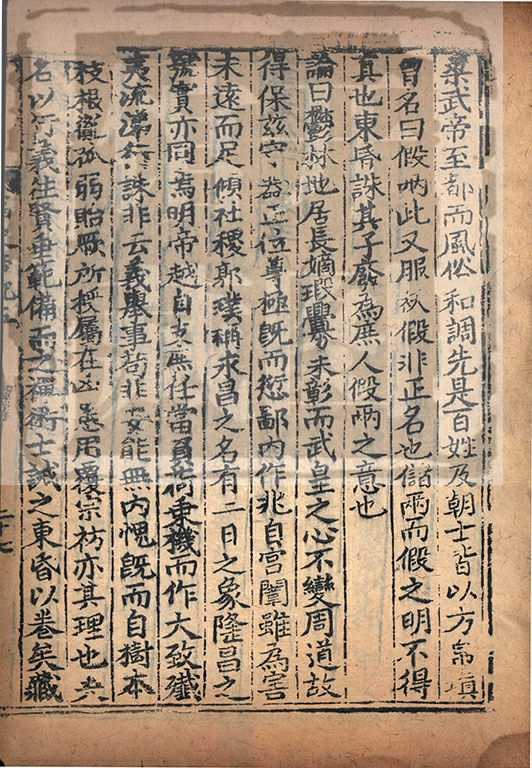 梁武帝至都而風俗和調先是百姓及朝士皆以方帛填
胷名曰假兩此又服祅假非正名也儲兩而假之明不得
真也東昏誅其子廢為庶人假兩之意也
論曰鬱林地居長嫡瑕釁未彰而武皇之心不變周道故
得保茲守器正位尊極旣而愆鄙內作兆自宮闈雖為害
未遠而足傾社稷郭璞稱永昌之名有二日之象隆昌之
號實亦同焉明帝越自支庶任當負荷乘機而作大致殲
夷流涕行誅非云義舉事苟非安能無內愧旣而自樹本
枝根胤孤弱貽厥所授屬在凶愚用覆宗祊亦其理也夫
名以行義生賢垂範備而之禪術士誡之東昏以卷矣藏